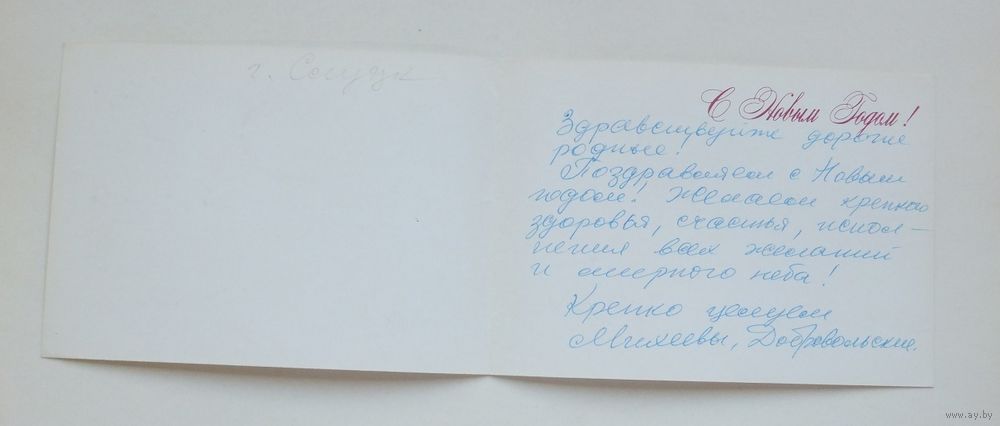 г.
С Новым Годом!
Здравствуйте дорогие
родные!
Поздравляем с Новым
годом! Желаем крепкого
здоровья, счастья, испол-
нения всех желаний
и мирного неба!
Крепко целуем
Михеевы, Добровольские.
www.ay.by